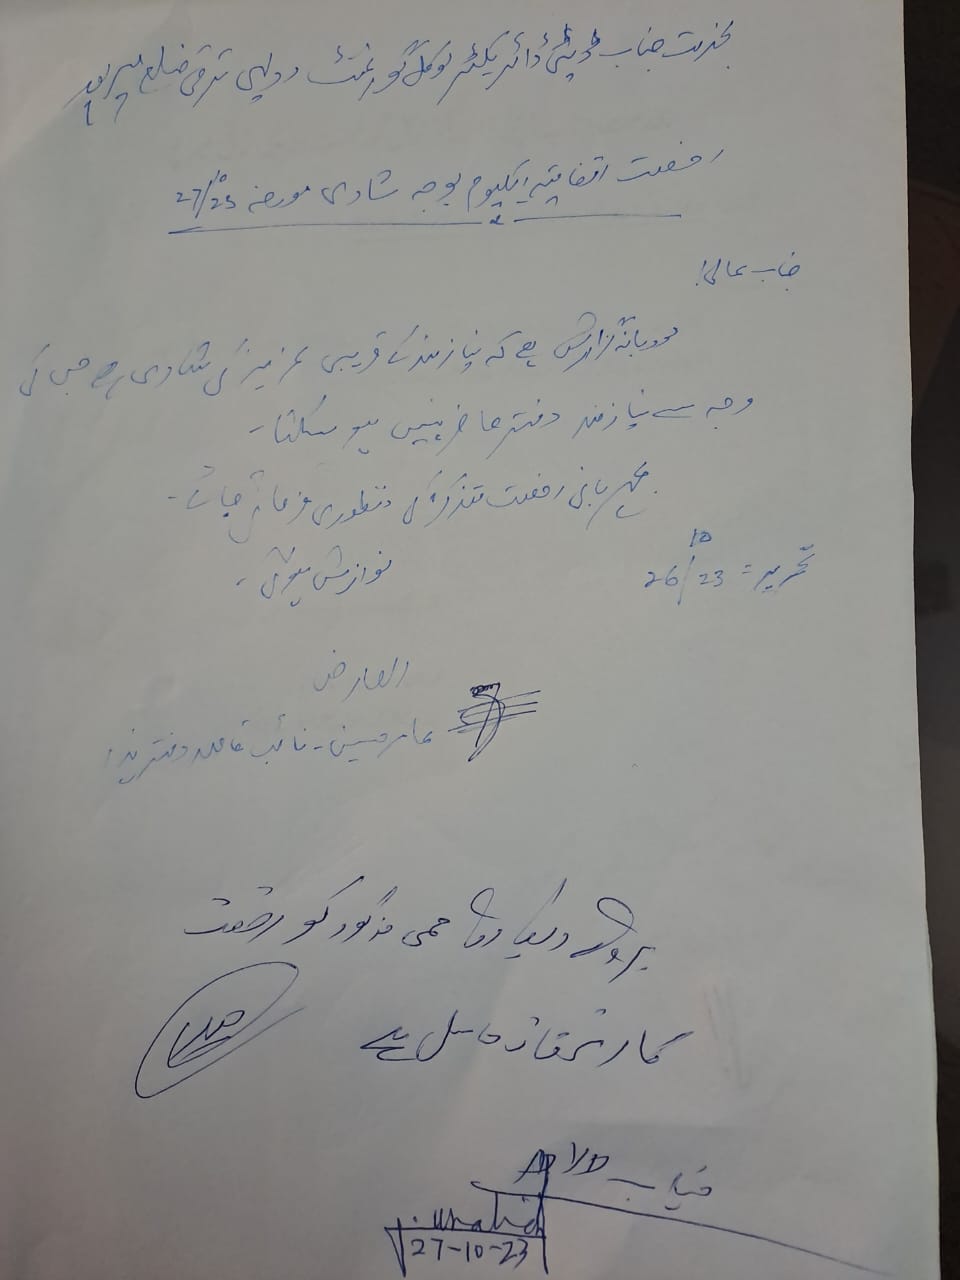 بخدمت جناب ڈپٹی ڈائریکٹر لوکل گورنمنٹ و دیہی ترقی ضلع میرپور
رخصت اتفاقیہ ایک یوم بوجہ شادی مورخہ 27/10/23
جناب عالی!
مودبانہ گزارش ہے کہ نیازمند کے قریبی عزیز کی شادی ہے جس کی
وجہ سے نیازمند دفتر حاضر نہیں ہو سکتا۔
مہربانی رخصت متذکرہ کی منظوری فرمائی جائے۔
نوازش ہوگی۔
تحریر = 26/10/23
العارض
عامر حسین۔ نائب قاصد دفتر ہذا
ریکارڈ مذکور کو رخصت
کا استحقاق حاصل ہے
جناب AD/D
Khalid
27-10-23